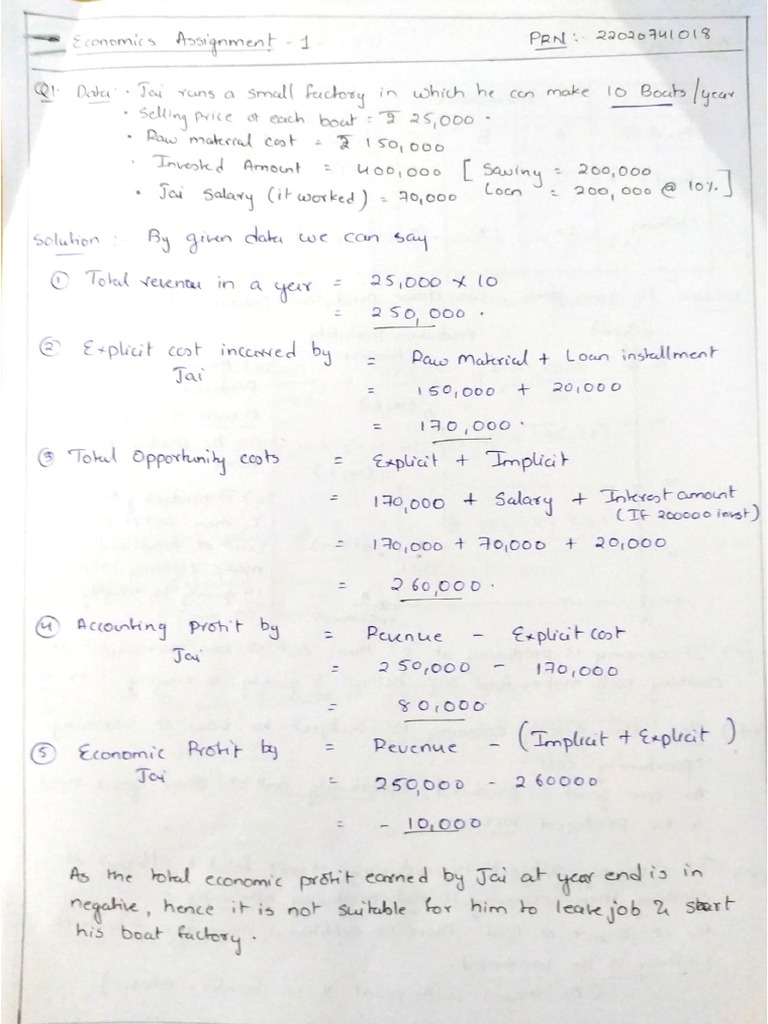 Economics Assignment - 1
PRN :- 22020741018
Q1. Data : • Jai runs a small factory in which he can make 10 Boats/year
• Selling price of each boat : ₹ 25,000 .
• Raw material cost = ₹ 150,000
• Invested Amount = 400,000 [ Saving = 200,000
Loan = 200,000 @ 10% ]
• Jai Salary (if worked) = 70,000
Solution : By given data we can say
① Total revenue in a year = 25,000 × 10
= 250,000 .
② Explicit cost incurred by Jai = Raw material + Loan installment
= 150,000 + 20,000
= 170,000 .
③ Total Opportunity costs = Explicit + Implicit
= 170,000 + Salary + Interest amount
(If 200000 invst)
= 170,000 + 70,000 + 20,000
= 260,000 .
④ Accounting Profit by Jai = Revenue - Explicit cost
= 250,000 - 170,000
= 80,000
⑤ Economic Profit by Jai = Revenue - (Implicit + Explicit)
= 250,000 - 260000
= - 10,000
As the total economic profit earned by Jai at year end is in
negative, hence it is not suitable for him to leave job & start
his boat factory .